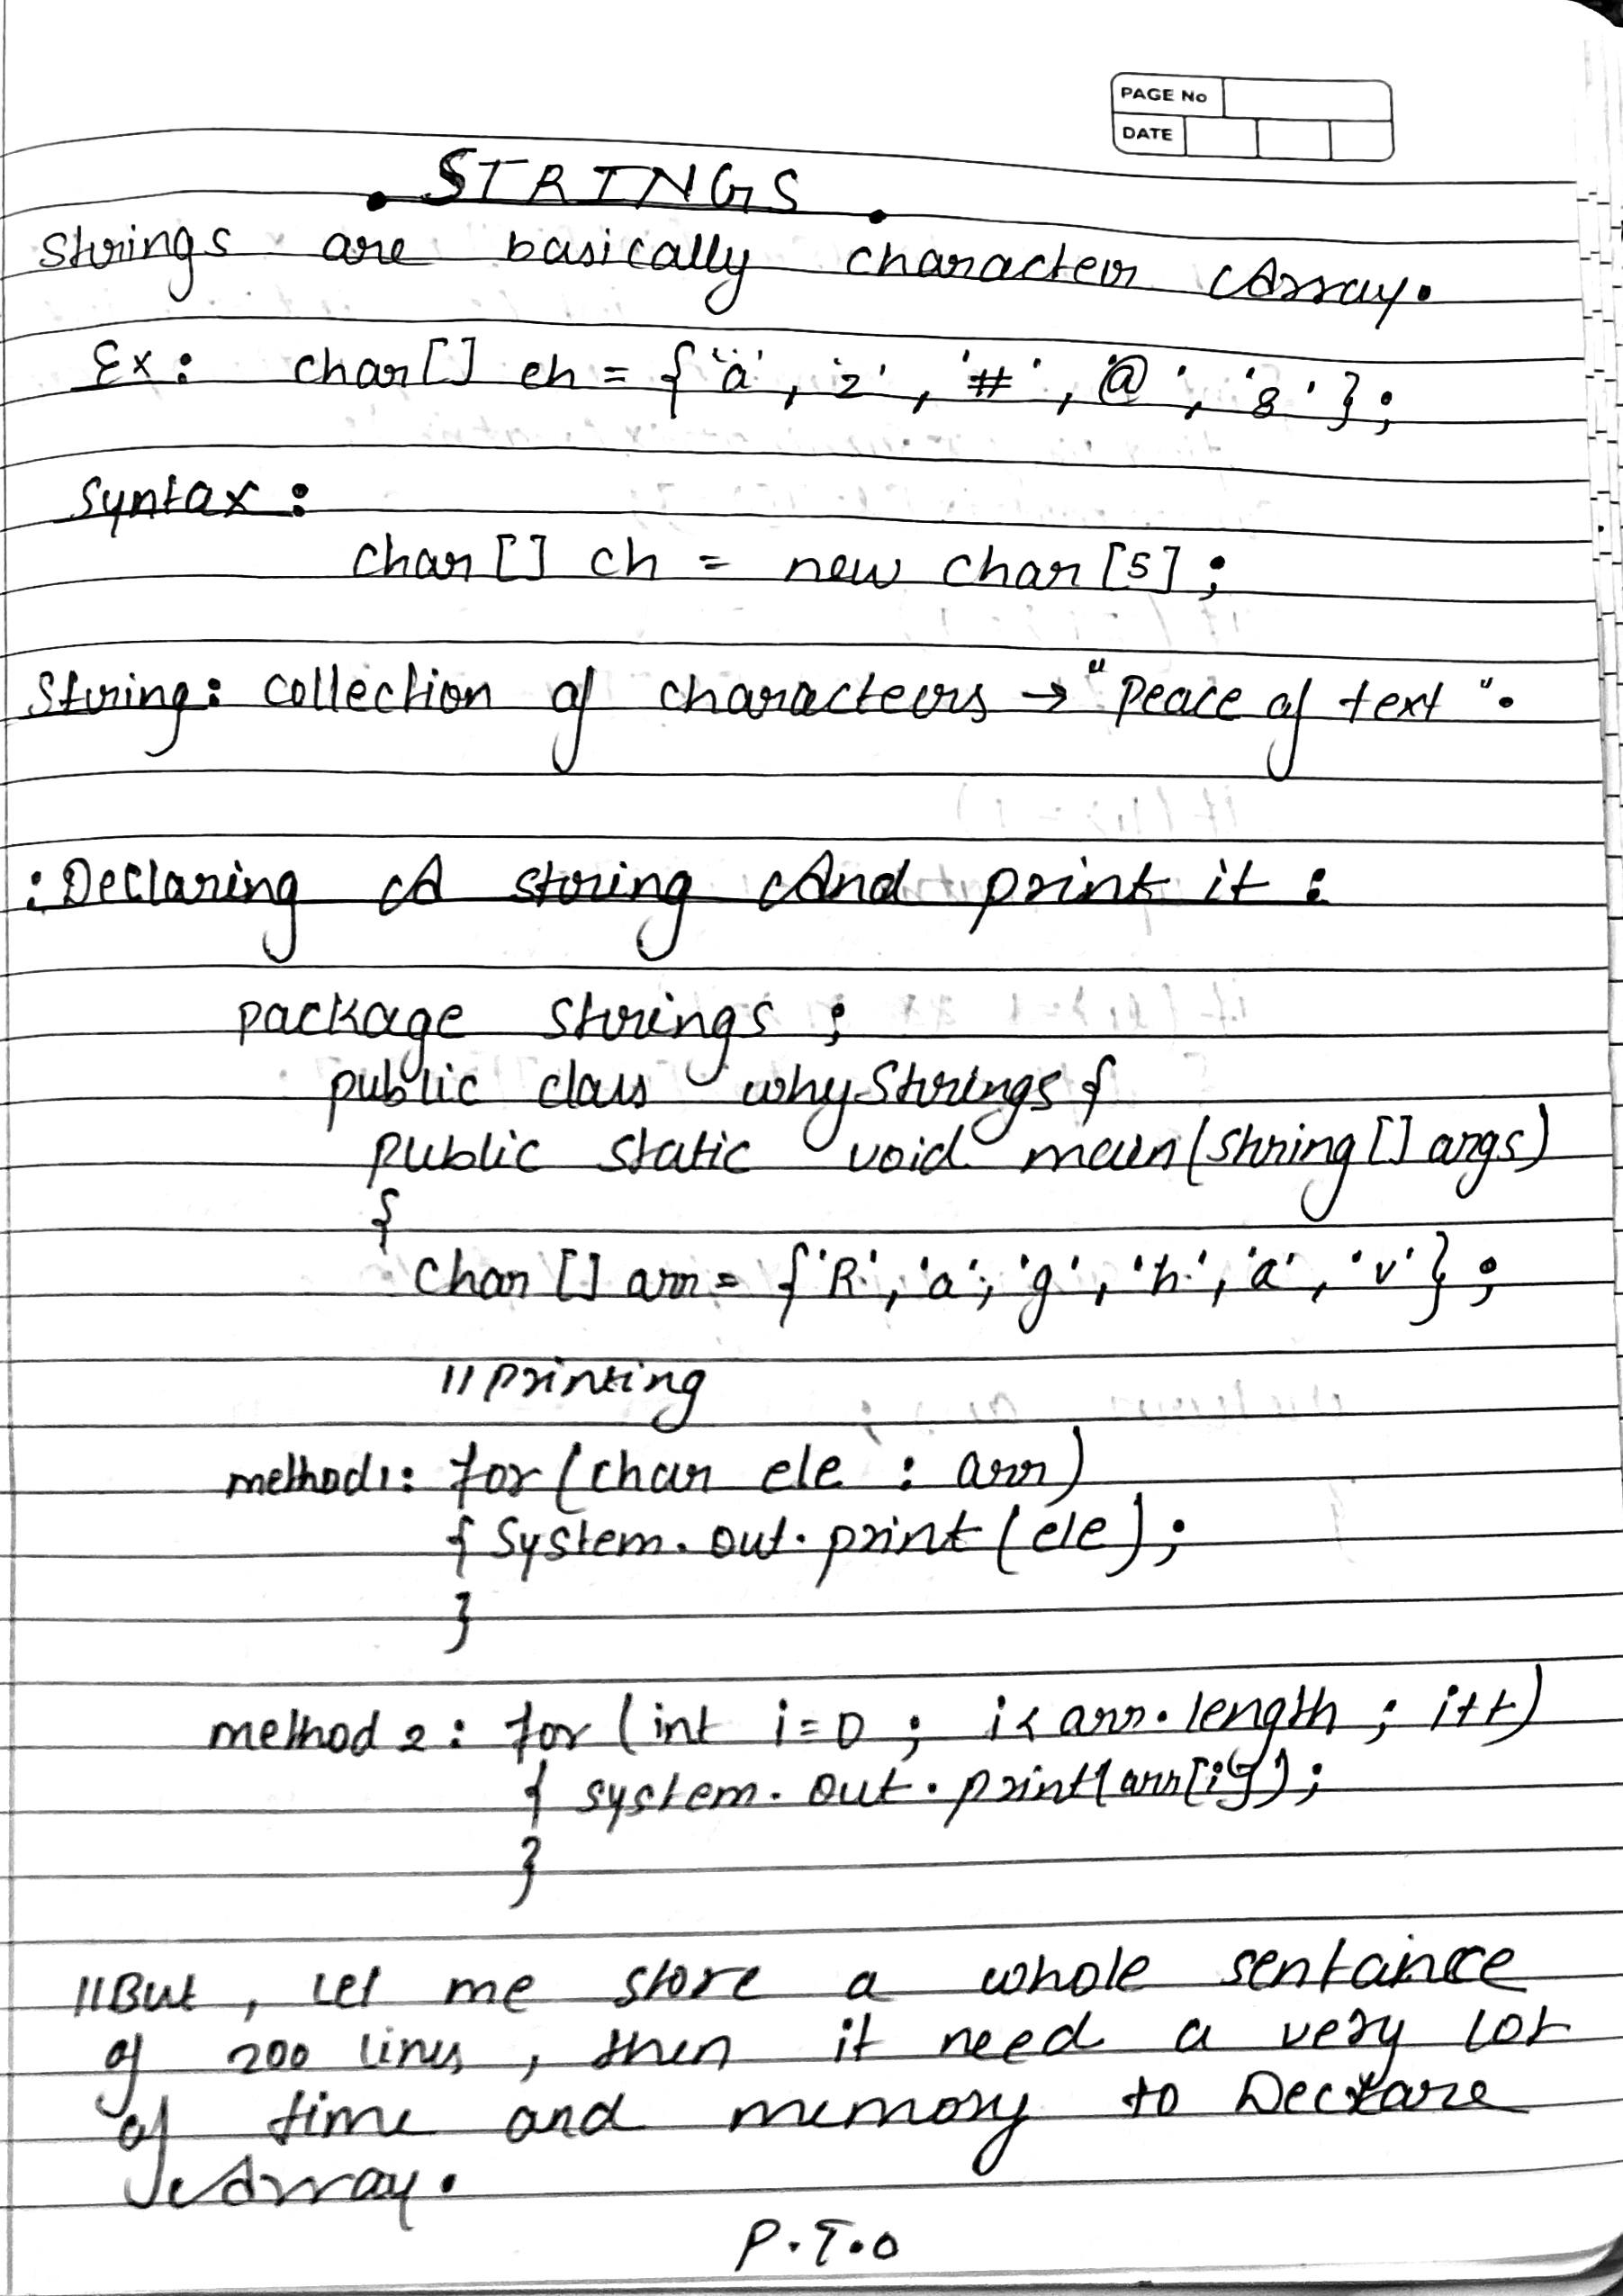 PAGE No
DATE
STRINGS
Strings are basically character Array.
Ex: char[] ch = {'a', 'z', '#', '@', '8'};
Syntax:
char[] ch = new char[5];
String: collection of characters → "Peace of text".
: Declaring A string And print it :
package strings;
public class whyStrings {
public static void main(string[] args)
{
char[] arr = {'R', 'a', 'g', 'h', 'a', 'v'};
//printing
method1: for(char ele : arr)
{ System.out.print(ele);
}
method 2: for(int i=0; i< arr.length; i++)
{ system.out.print(arr[i]);
}
//But, Let me store a whole sentance
of 200 lines, then it need a very lot
of time and memory to Declare
Array.
P.T.O